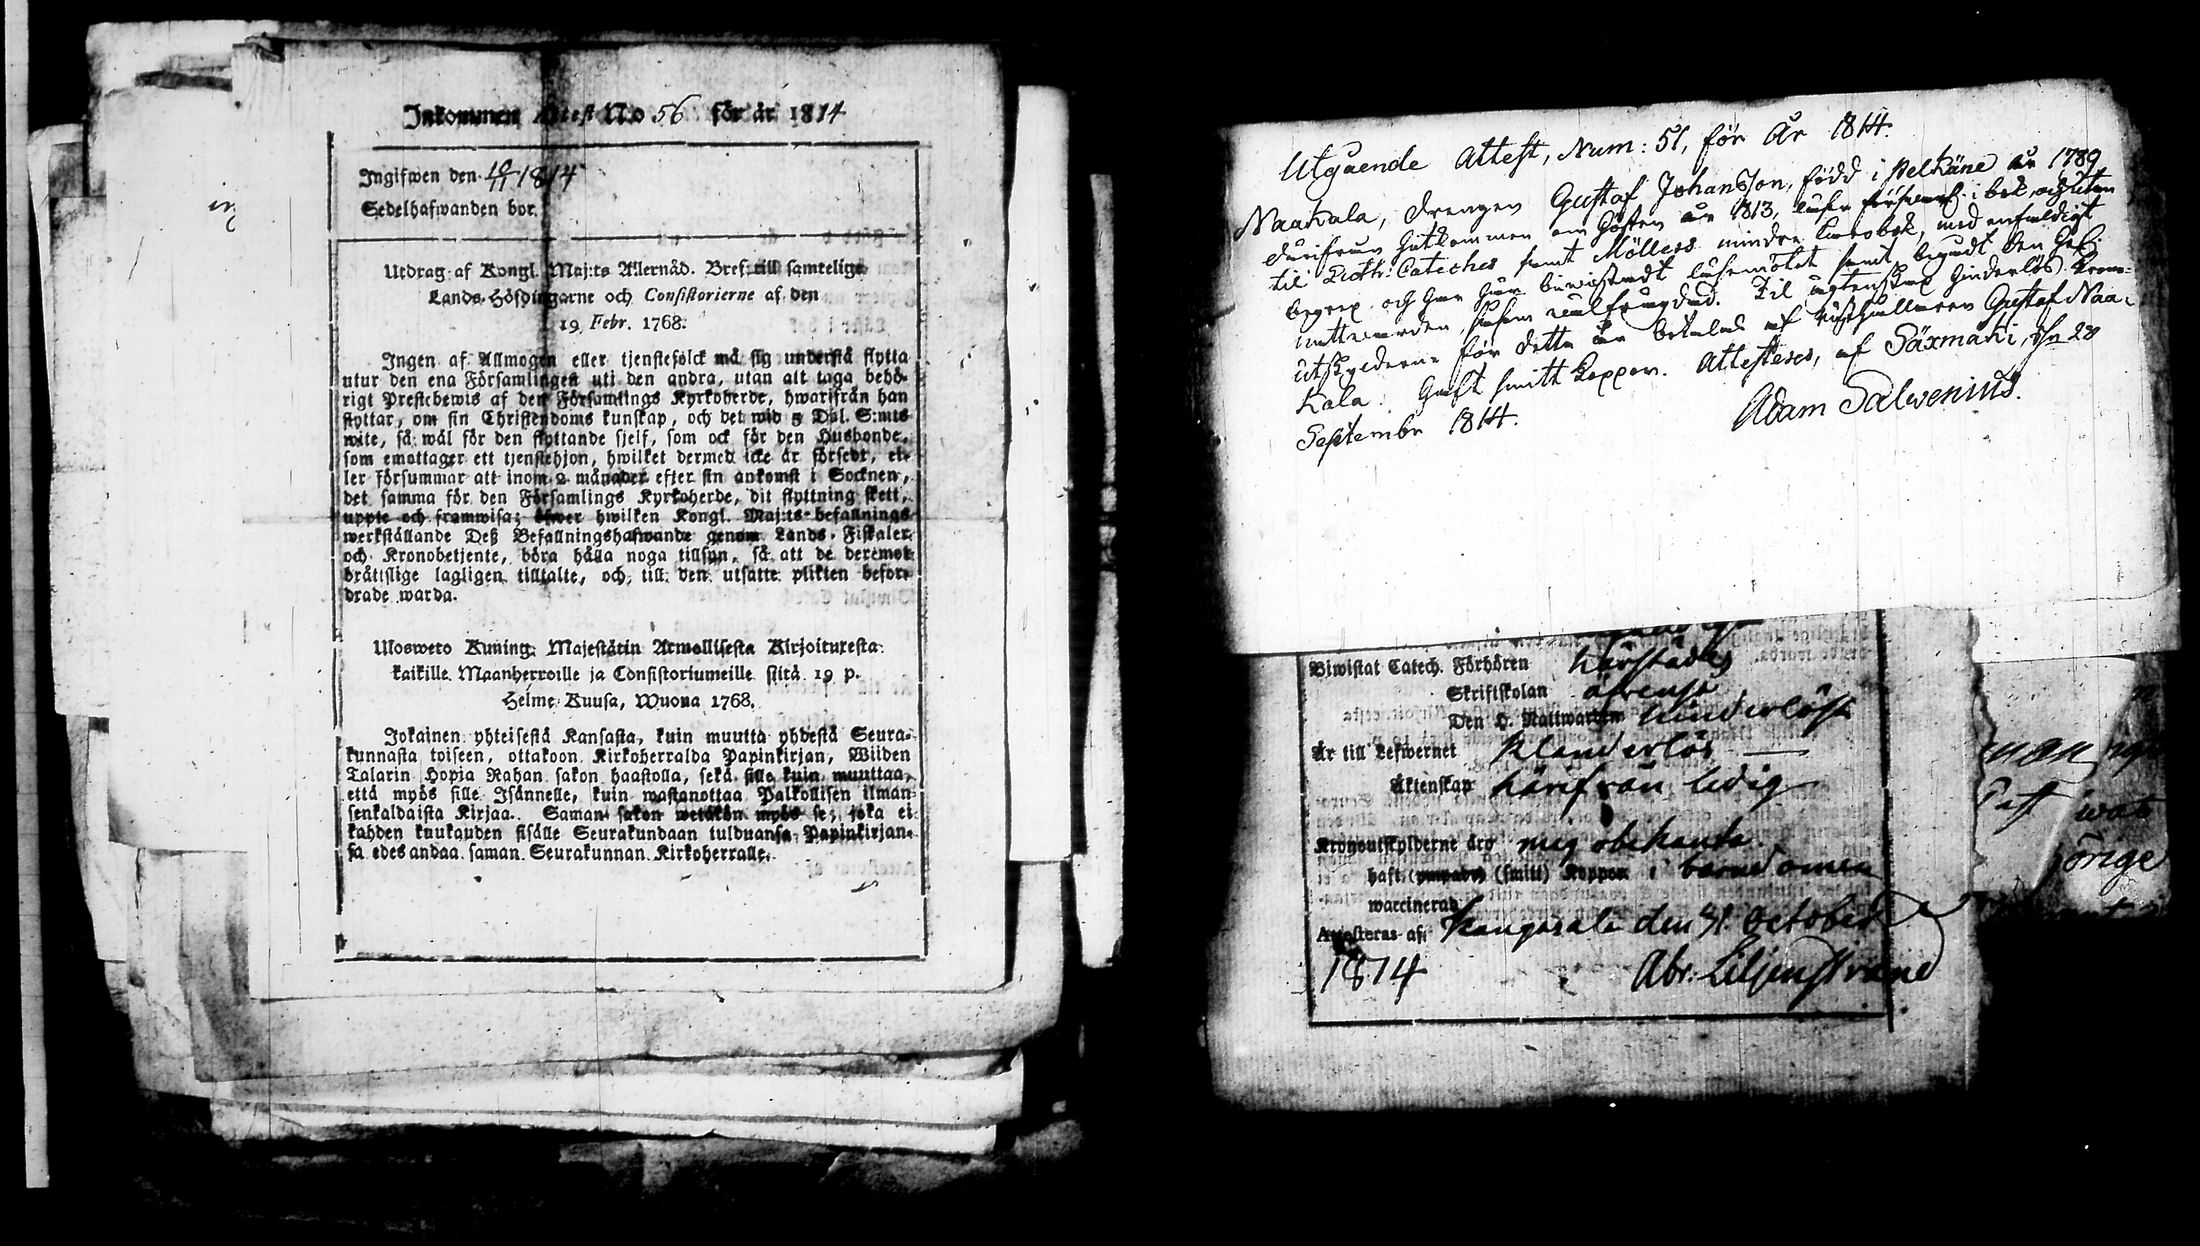 Inkommen Attest No 56 för år 1814
Ingifwen den 10/11 1814
Sedelhafwanden bor
Utdrag af Kongl. Maj:ts Allernåd. Bref till samtelige
Lands-Höfdingarne och Consistorierne af den
19 Febr. 1768.
Ingen af Allmogen eller tjenstefolck må sig understå flytta
utur den ena Församlingen uti den andra, utan att taga behö-
rigt Prestebewis af den Församlings Kyrkoherde, hwarifrån han
flyttar, om sin Christendoms kunskap, och det wid 5 Dal. S:mts
wite, så wäl för den flyttande sjelf, som ock för den Husbonde,
som emottager ett tjenstehjon, hwilket dermed icke är försedt, el-
ler försummar att inom 2 månader efter sin ankomst i Socknen,
det samma för den Församlings Kyrkoherde, dit flyttning skett,
uppte och framwisa; öfwer hwilken Kongl. Maj:ts befallnings
werkställande Deß Befallningshafwande genom Lands-Fiskaler
och Kronobetjente, böra hålla noga tillsyn, så att de deremot
bråttslige lagligen tilltalte, och till den utsatte plikten befor-
drade warda.
Ulosweto Kuning: Majestätin Armollisesta Kirjoituxesta
kaikille Maanherroille ja Consistoriumeille siitä 19 p.
Helme Kuusa, Wuona 1768.
Jokainen yhteisestä Kansasta, kuin muutta yhdestä Seura-
kunnasta toiseen, ottakoon Kirkoherralda Papinkirjan, Wiiden
Talarin Hopia Rahan sakon haastolla, sekä sille kuin muuttaa,
että myös sille Isännelle, kuin wastanottaa Palkollisen ilman
senkaldaista Kirjaa. Saman sakon wetäkön myös se, joka ei
kahden kuukauden sisälle Seurakundaan tulduansa Papinkirjan-
sa edesandaa saman Seurakunnan Kirkoherralle.
Utgående Attest, Num: 51, för år 1814.
Naakala, drengen Gustaf Johansson, född i Pelkäne år 1789
durifrån hitkommen om hösten år 1813, läser försvarl. i bok, och utan
til Luth: Cateches samt Möllers mindre Lärobok, med enfaldigt
begrep och har här biwistadt läsemötet samt begådt den hel.
nattwarden, sasom wälfrägdad. Til ägtenskap hinderlös. Krono-
utskylderne för detta år betalas af rusthållaren Gustaf Naa-
kala. Haft smitt koppor. Attesteres, af Säxmäki, d. 28
Septembr 1814.
Adam Salwenius.
Biwistat Catech. Förhören härstädes
Skriftskolan äfrenså
Den H. Nattwarden hinderlöst
Är till Lefwernet klanderlös
Äktenskap härifrån ledig
Kronoutskylderne äro mig obekanta
haft (ympade) (smitt) Koppor i barndomen
waccinerad
Attesteras af Kangasala den 31 October
1814 Abr: Liljenstrand
örige